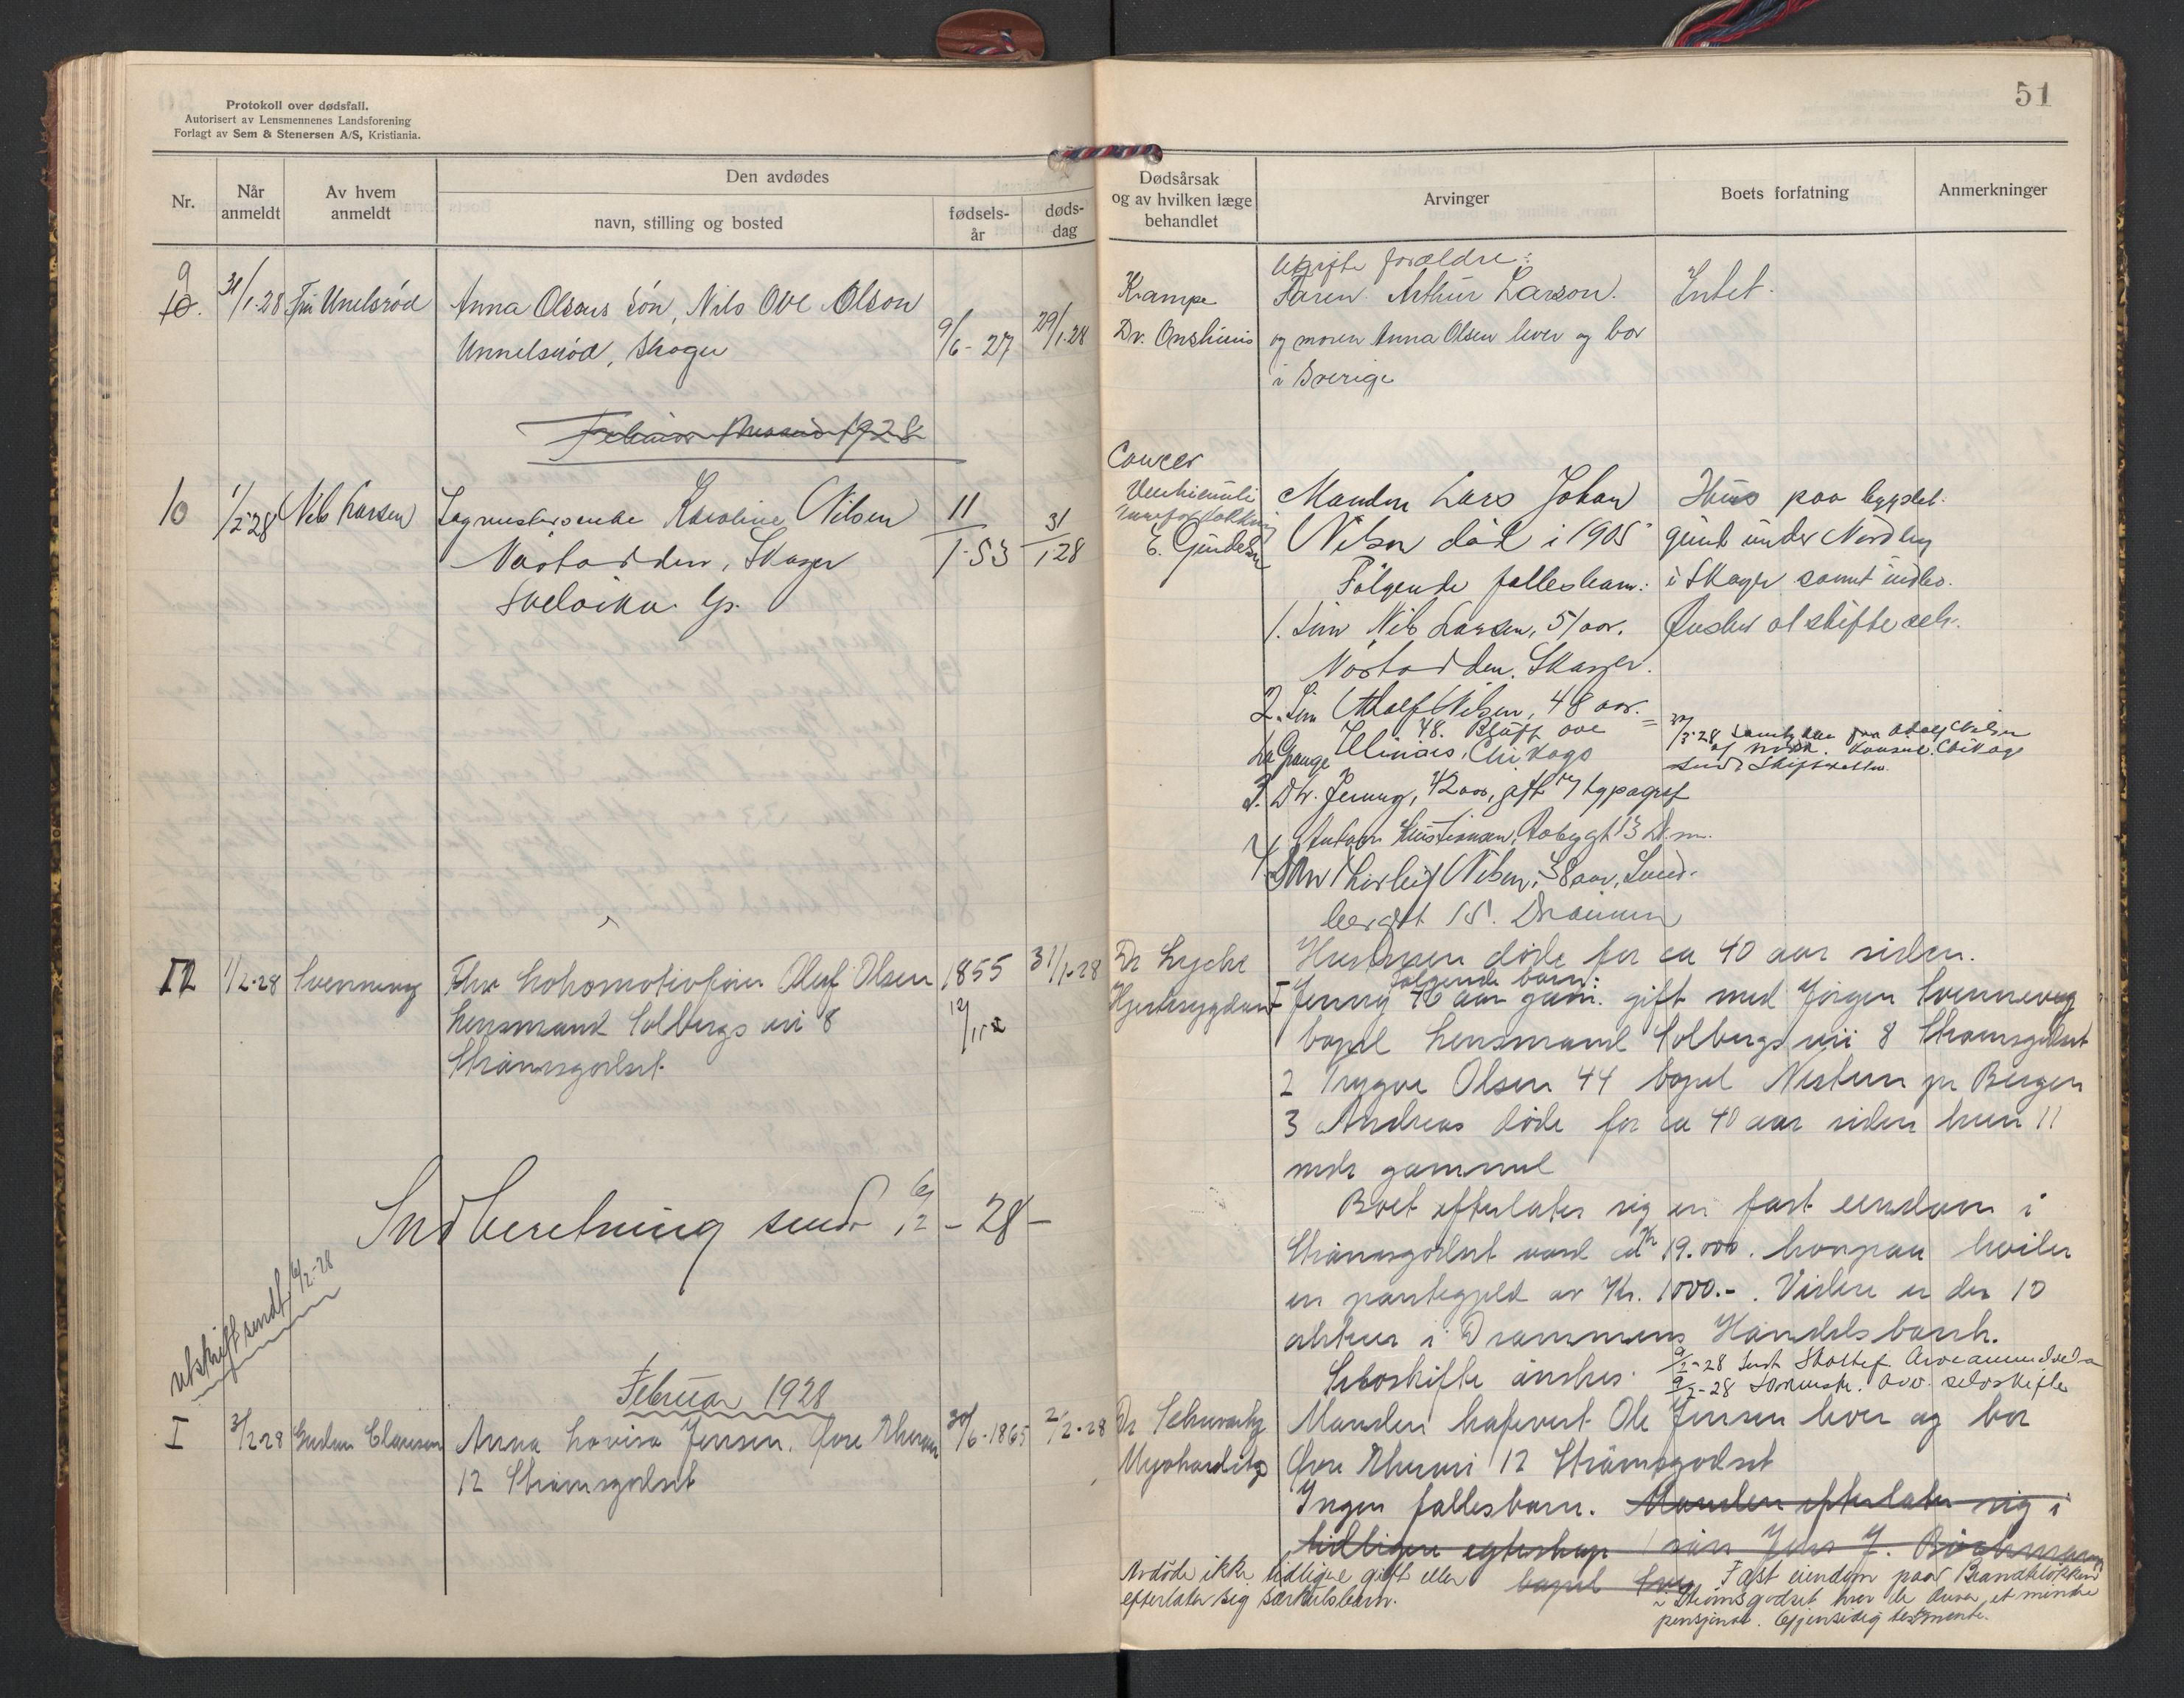 Protokoll over dødsfall.
Autorisert av Lensmennenes Landsforening
Forlagt av Sem & Stenersen A/S, Kristiania.
Nr.
Når anmeldt
Av hvem anmeldt
Den avdødes
navn, stilling og bosted
fødsels-
år
døds-
dag
9
10.
31/1-28
Anna Olsens søn, Nils Ove Olson
Skoger
9/6-27
29/1.28
Februar 1928
10
1/2-28
Nils Larsen
Karoline Nilsen
Skoger
Svelvikv.
11/1-53
31/1 28
11
1/2-28
Fhv. Lokomotivfører Oluf Olsen
Lensmand Solbergs vei 8
Strømsgodset
1855
12/11
31/1-28
Indberetning sendt 6/2-28-
utskrift sendt 6/2-28
Februar 1928
I
3/2-28
Anna Lovisa Jensen, Øvre
12 Strømsgodset
30/6-1865
2/2-28
51
Dødsårsak
og av hvilken læge
behandlet
Arvinger
Boets forfatning
Anmerkninger
Krampe
Dr.
Ugifte forældre:
Faren Arthur Larson.
og moren Anna Olsen lever og bor
i Sverige
Intet.
Cancer
Manden Lars Johan
Nilsen død i 1905
Følgende fellesbarn:
1. Søn Nils Larsen, 51 aar.
Skoger.
2. Søn Adolf Nilsen, 48 aar.
48. Bluff ave
La Grange Illinois, Chikago
3. Dtr. Jenny, 42 aar, gift m/ typograf
Anton Kristiansen, 13 Dr.m.
4. Søn Thorleif Nilsen, 38 aar, Lund-
15. Drammen
Hus paa bygsel-
grund under Nordby
i Skoger samt indbo.
Ønsker at skifte selv.
Adolf Nilsen
Chikago
sendt Skifteretten.
Dr Lyche
Hjertesygdom
Hustruen døde for ca 40 aar siden.
Følgende barn:
1 Jenny 46 aar gam. gift med Jørgen Svennevig
bopel Lensmand Solbergs vei 8 Strømsgodset
2 Trygve Olsen 44 bopel Nestun pr Bergen
3 Andreas døde for ca 40 aar siden kun 11
mdr gammel
Boet efterlater sig en fast eiendom i
Strømsgodset værd ca Kr 19.000. hvorpaa hviler
en pantegjeld av Kr. 1000.-. Videre er der 10
aktier i Drammens Handelsbank.
Selvskifte ønskes.
9/2-28 sendt Skattef.
9/2-28 Sorenskr. selvskifte
Dr Schwartz
Myokardit
Manden Ole Jensen lever og bor
Øvre 12 Strømsgodset
Ingen fellesbarn. Manden efterlater sig i
tidligere egteskap 1 søn Jens J.
bopel
Avdøde ikke tidligere gift eller
efterlater sig særkulsbarn.
Fast eiendom paa Brandtløkken
i Strømsgodset hvor de driver et mindre
pensjonat. Gjensidig testamente.